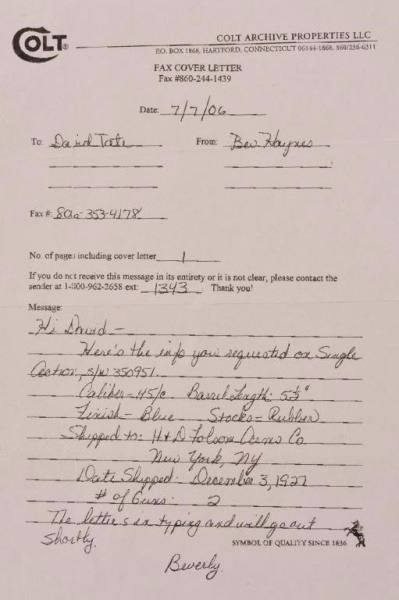 COLT
COLT ARCHIVE PROPERTIES LLC
P.O. BOX 1868, HARTFORD, CONNECTICUT 06144-1868. 860/236-6311
FAX COVER LETTER
Fax #860-244-1439
Date: 7/7/06
To: David From: Bev Haynes
Fax #: 353-4178
No. of pages including cover letter 1
If you do not receive this message in its entirety or it is not clear, please contact the
sender at 1-800-962-2658 ext: 1343 Thank you!
Message:
Hi David -
Here's the info you requested on Single
Action, s/n 350951.
Caliber - 45/c Barrel Length: 5½"
Finish - Blue Stocks = Rubber
Shipped to: H & D Folsom Arms Co
New York, NY
Date Shipped: December 3, 1927
# of Guns: 2
The letter is in typing and will go out
Shortly.
SYMBOL OF QUALITY SINCE 1836
Beverly